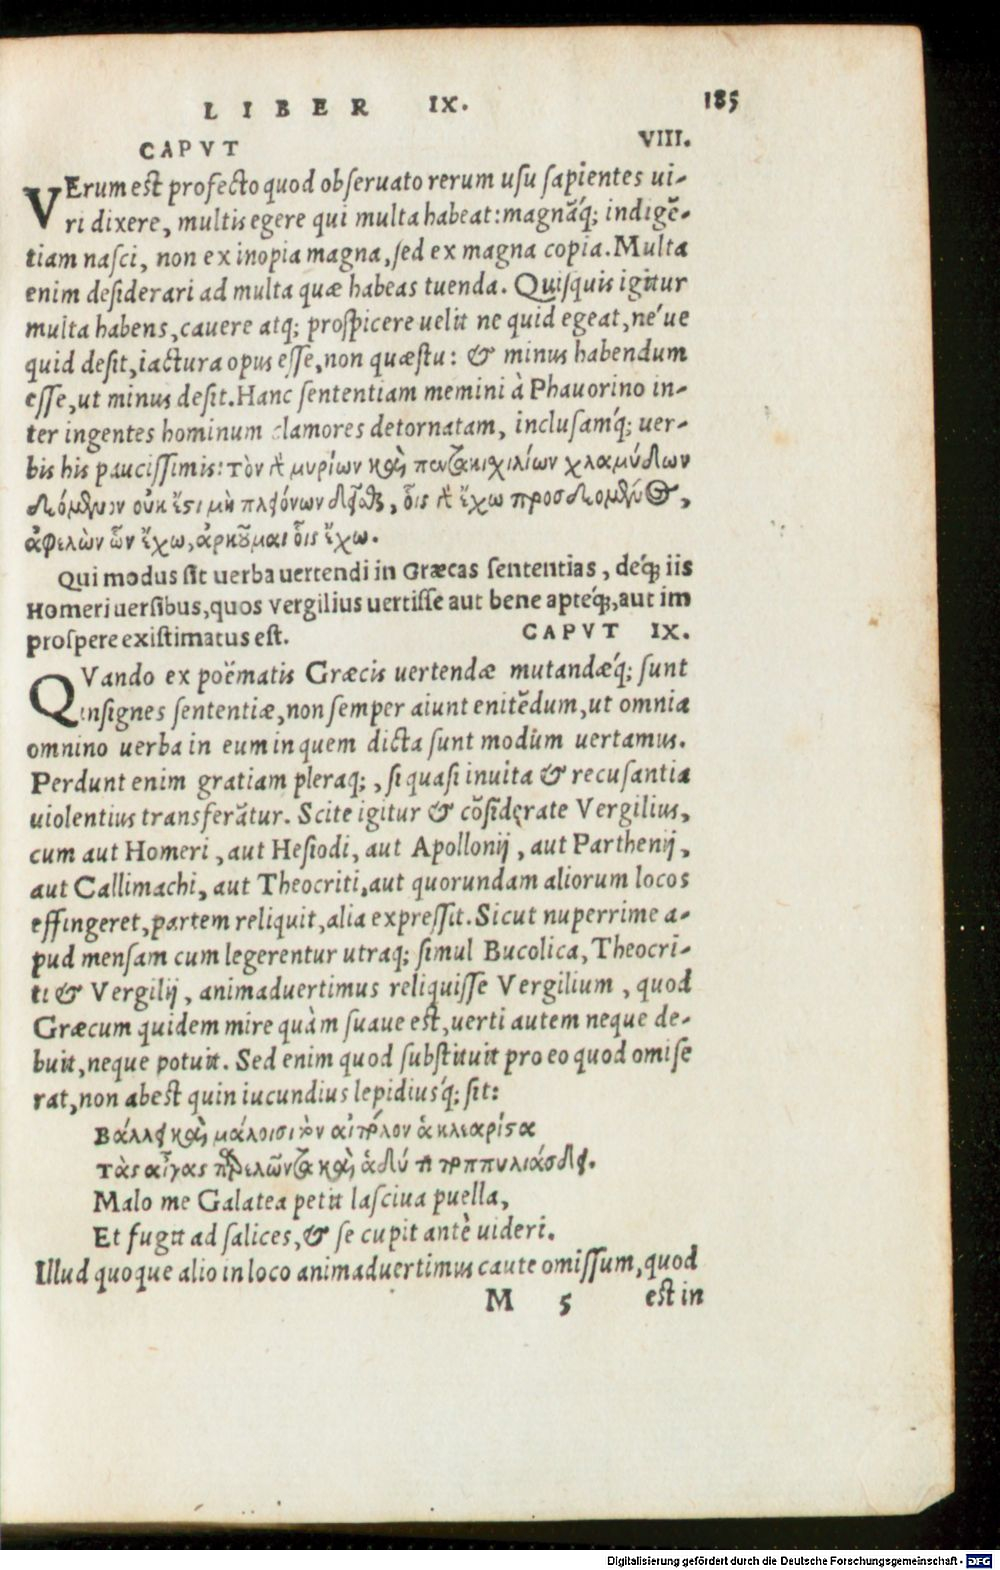 LIBER IX. 185
CAPVT VIII.
VErum est profecto quod obseruato rerum usu sapientes ui-
ri dixere, multis egere qui multa habeat: magnāq́; indigē-
tiam nasci, non ex inopia magna, sed ex magna copia. Multa
enim desiderari ad multa quæ habeas tuenda. Quisquis igitur
multa habens, cauere atq; prospicere uelit ne quid egeat, né ue
quid desit, iactura opus esse, non quæstu: & minus habendum
esse, ut minus desit. Hanc sententiam memini à Phauorino in-
ter ingentes hominum clamores detornatam, inclusamq́; uer-
bis his paucissimis: τὸν μυρίων καὶ πεντακιχιλίων χλαμύδων
δεόμενον οὐκ ἔστι μὴ πλειόνων δεῖσθαι, οἷς ἔχω προσδεομενος,
ἀφελὼν ὧν ἔχω, ἀρκοῦμαι οἷς ἔχω.
Qui modus sit uerba uertendi in Græcas sententias, déq́; iis
Homeri uersibus, quos Vergilius uertisse aut bene apteq́;, aut im
prospere existimatus est. CAPVT IX.
QVando ex poëmatis Græcis uertendæ mutandæq́; sunt
insignes sententiæ, non semper aiunt enitēdum, ut omnia
omnino uerba in eum in quem dicta sunt modum uertamus.
Perdunt enim gratiam pleraq;, si quasi inuita & recusantia
uiolentius transferātur. Scite igitur & cōsiderate Vergilius,
cum aut Homeri, aut Hesiodi, aut Apollonij, aut Parthenij,
aut Callimachi, aut Theocriti, aut quorundam aliorum locos
effingeret, partem reliquit, alia expressit. Sicut nuperrime a-
pud mensam cum legerentur utraq; simul Bucolica, Theocri-
ti & Vergilij, animaduertimus reliquisse Vergilium, quod
Græcum quidem mire quàm suaue est, uerti autem neque de-
buit, neque potuit. Sed enim quod substituit pro eo quod omise
rat, non abest quin iucundius lepidiusq́; sit:
Βάλλει καὶ μάλοισι τὸν αἰπόλον ἁ κλεαρίστα
τὰς αἶγας παρελῶντα καὶ ἁδύ τι ποππυλιάσδει.
Malo me Galatea petit lasciua puella,
Et fugit ad salices, & se cupit antè uideri.
Illud quoque alio in loco animaduertimus caute omissum, quod
M 5 est in
Digitalisierung gefördert durch die Deutsche Forschungsgemeinschaft - DFG